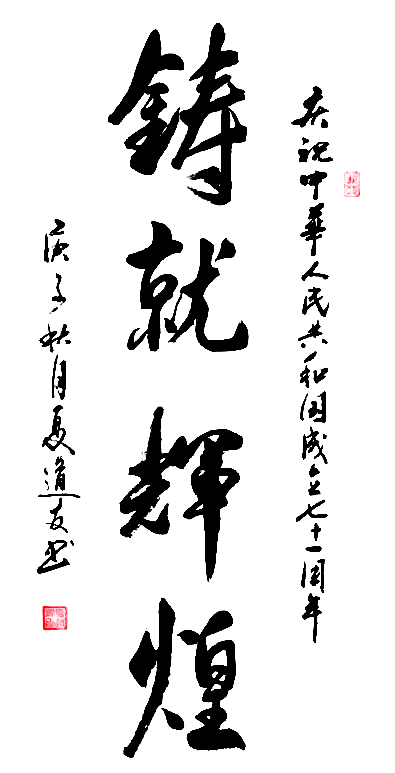 庆祝中華人民共和国成立七十一周年
鋳就輝煌
庚子秋月夏道友书